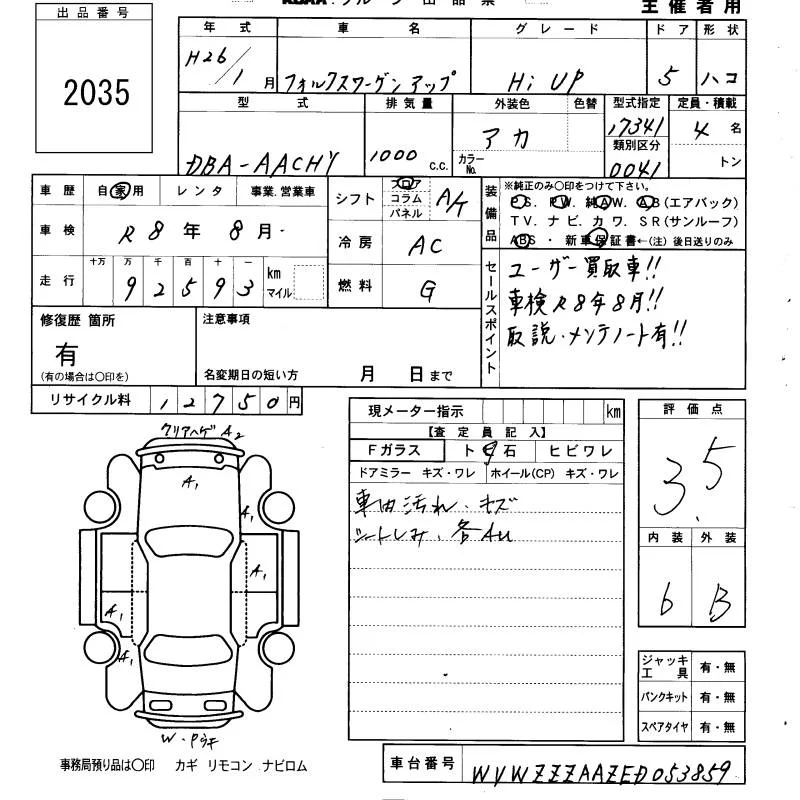 出品番号
2035
主催者用
年式 車名 グレード ドア 形状
H26/1月 フォルクスワーゲンアップ Hi UP 5 ハコ
型式 排気量 外装色 色替 型式指定 定員・積載
DBA-AACHY 1000 C.C. アカ カラーNo. 17341 4名
類別区分
0041 トン
車歴 自家用 レンタ 事業.営業車
車検 R8年8月
走行 十万 万 千 百 十 一
92593 km マイル
シフト フロア コラム パネル A/T
冷房 AC
燃料 G
装備品 ※純正のみ○印をつけて下さい。
PS. PW. 純AW. AB(エアバック)
TV. ナビ. カワ. SR(サンルーフ)
ABS・新車保証書←(注)後日送りのみ
セールスポイント
ユーザー買取車!!
車検R8年8月!!
取説・メンテノート有!!
修復歴 箇所
有
(有の場合は○印を)
注意事項
名変期日の短い方 月 日まで
リサイクル料 12750円
現メーター指示 km
【査定員記入】
Fガラス ト 石 ヒビワレ
ドアミラー キズ・ワレ ホイール(CP) キズ・ワレ
車内汚れ.キズ
シートしみ.各AU
評価点
3.5
内装 外装
6 B
クリアハゲ A2
A1
A1
A1
A1
A1
ジャッキ工具 有・無
パンクキット 有・無
スペアタイヤ 有・無
事務局預り品は○印 カギ リモコン ナビロム
車台番号 WVWZZZAAZED053859